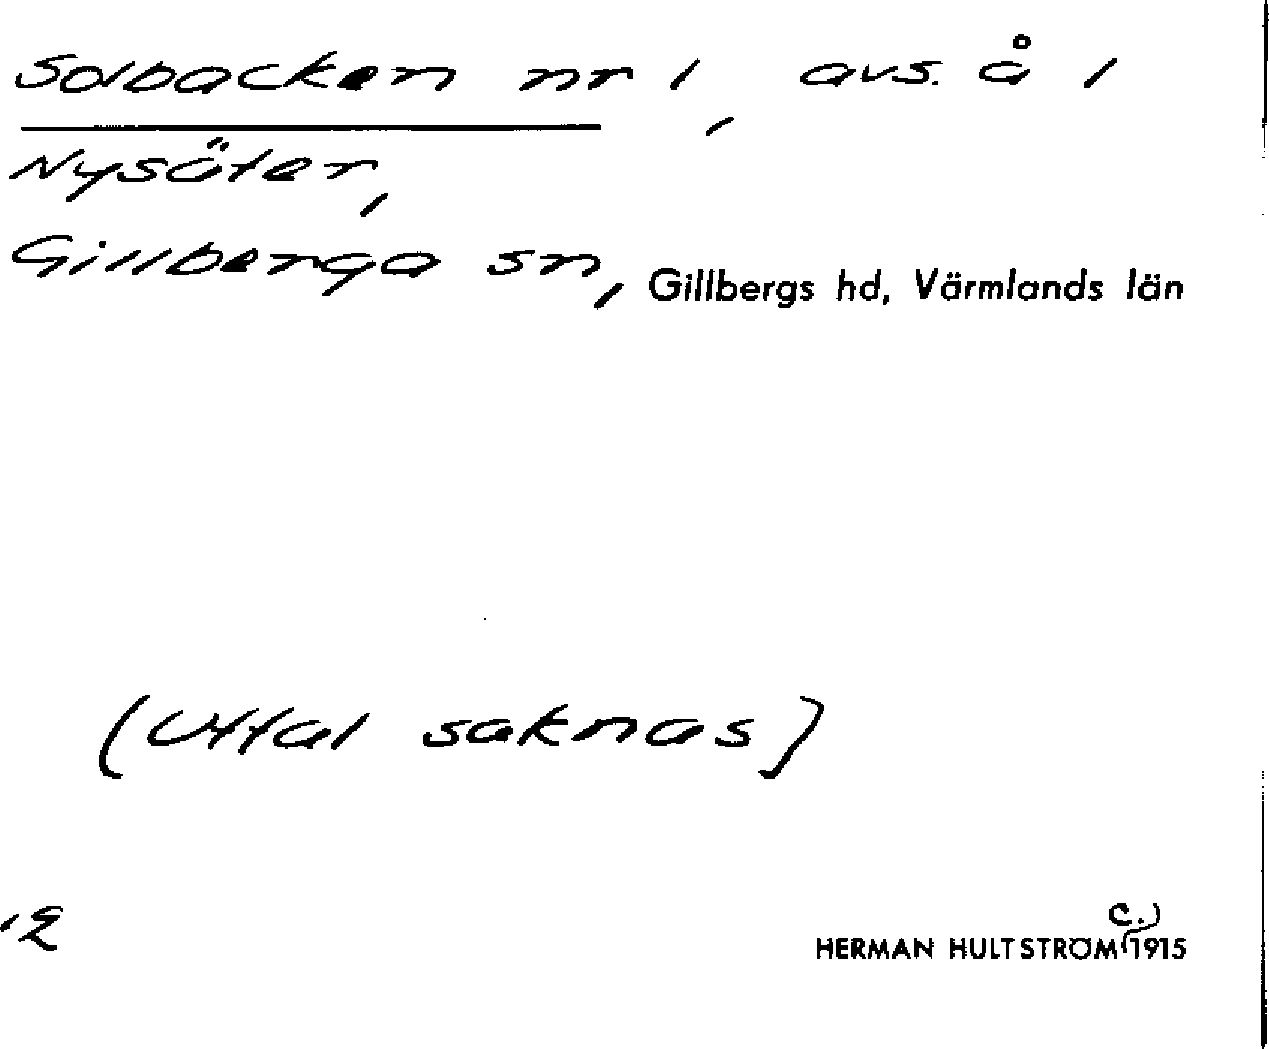 Solbacken nr 1, avs. å 1
Nysäter,
Gillberga sn, Gillbergs hd, Värmlands län
(Uttal saknas)
12
HERMAN HULTSTRÖM (c.) 1915